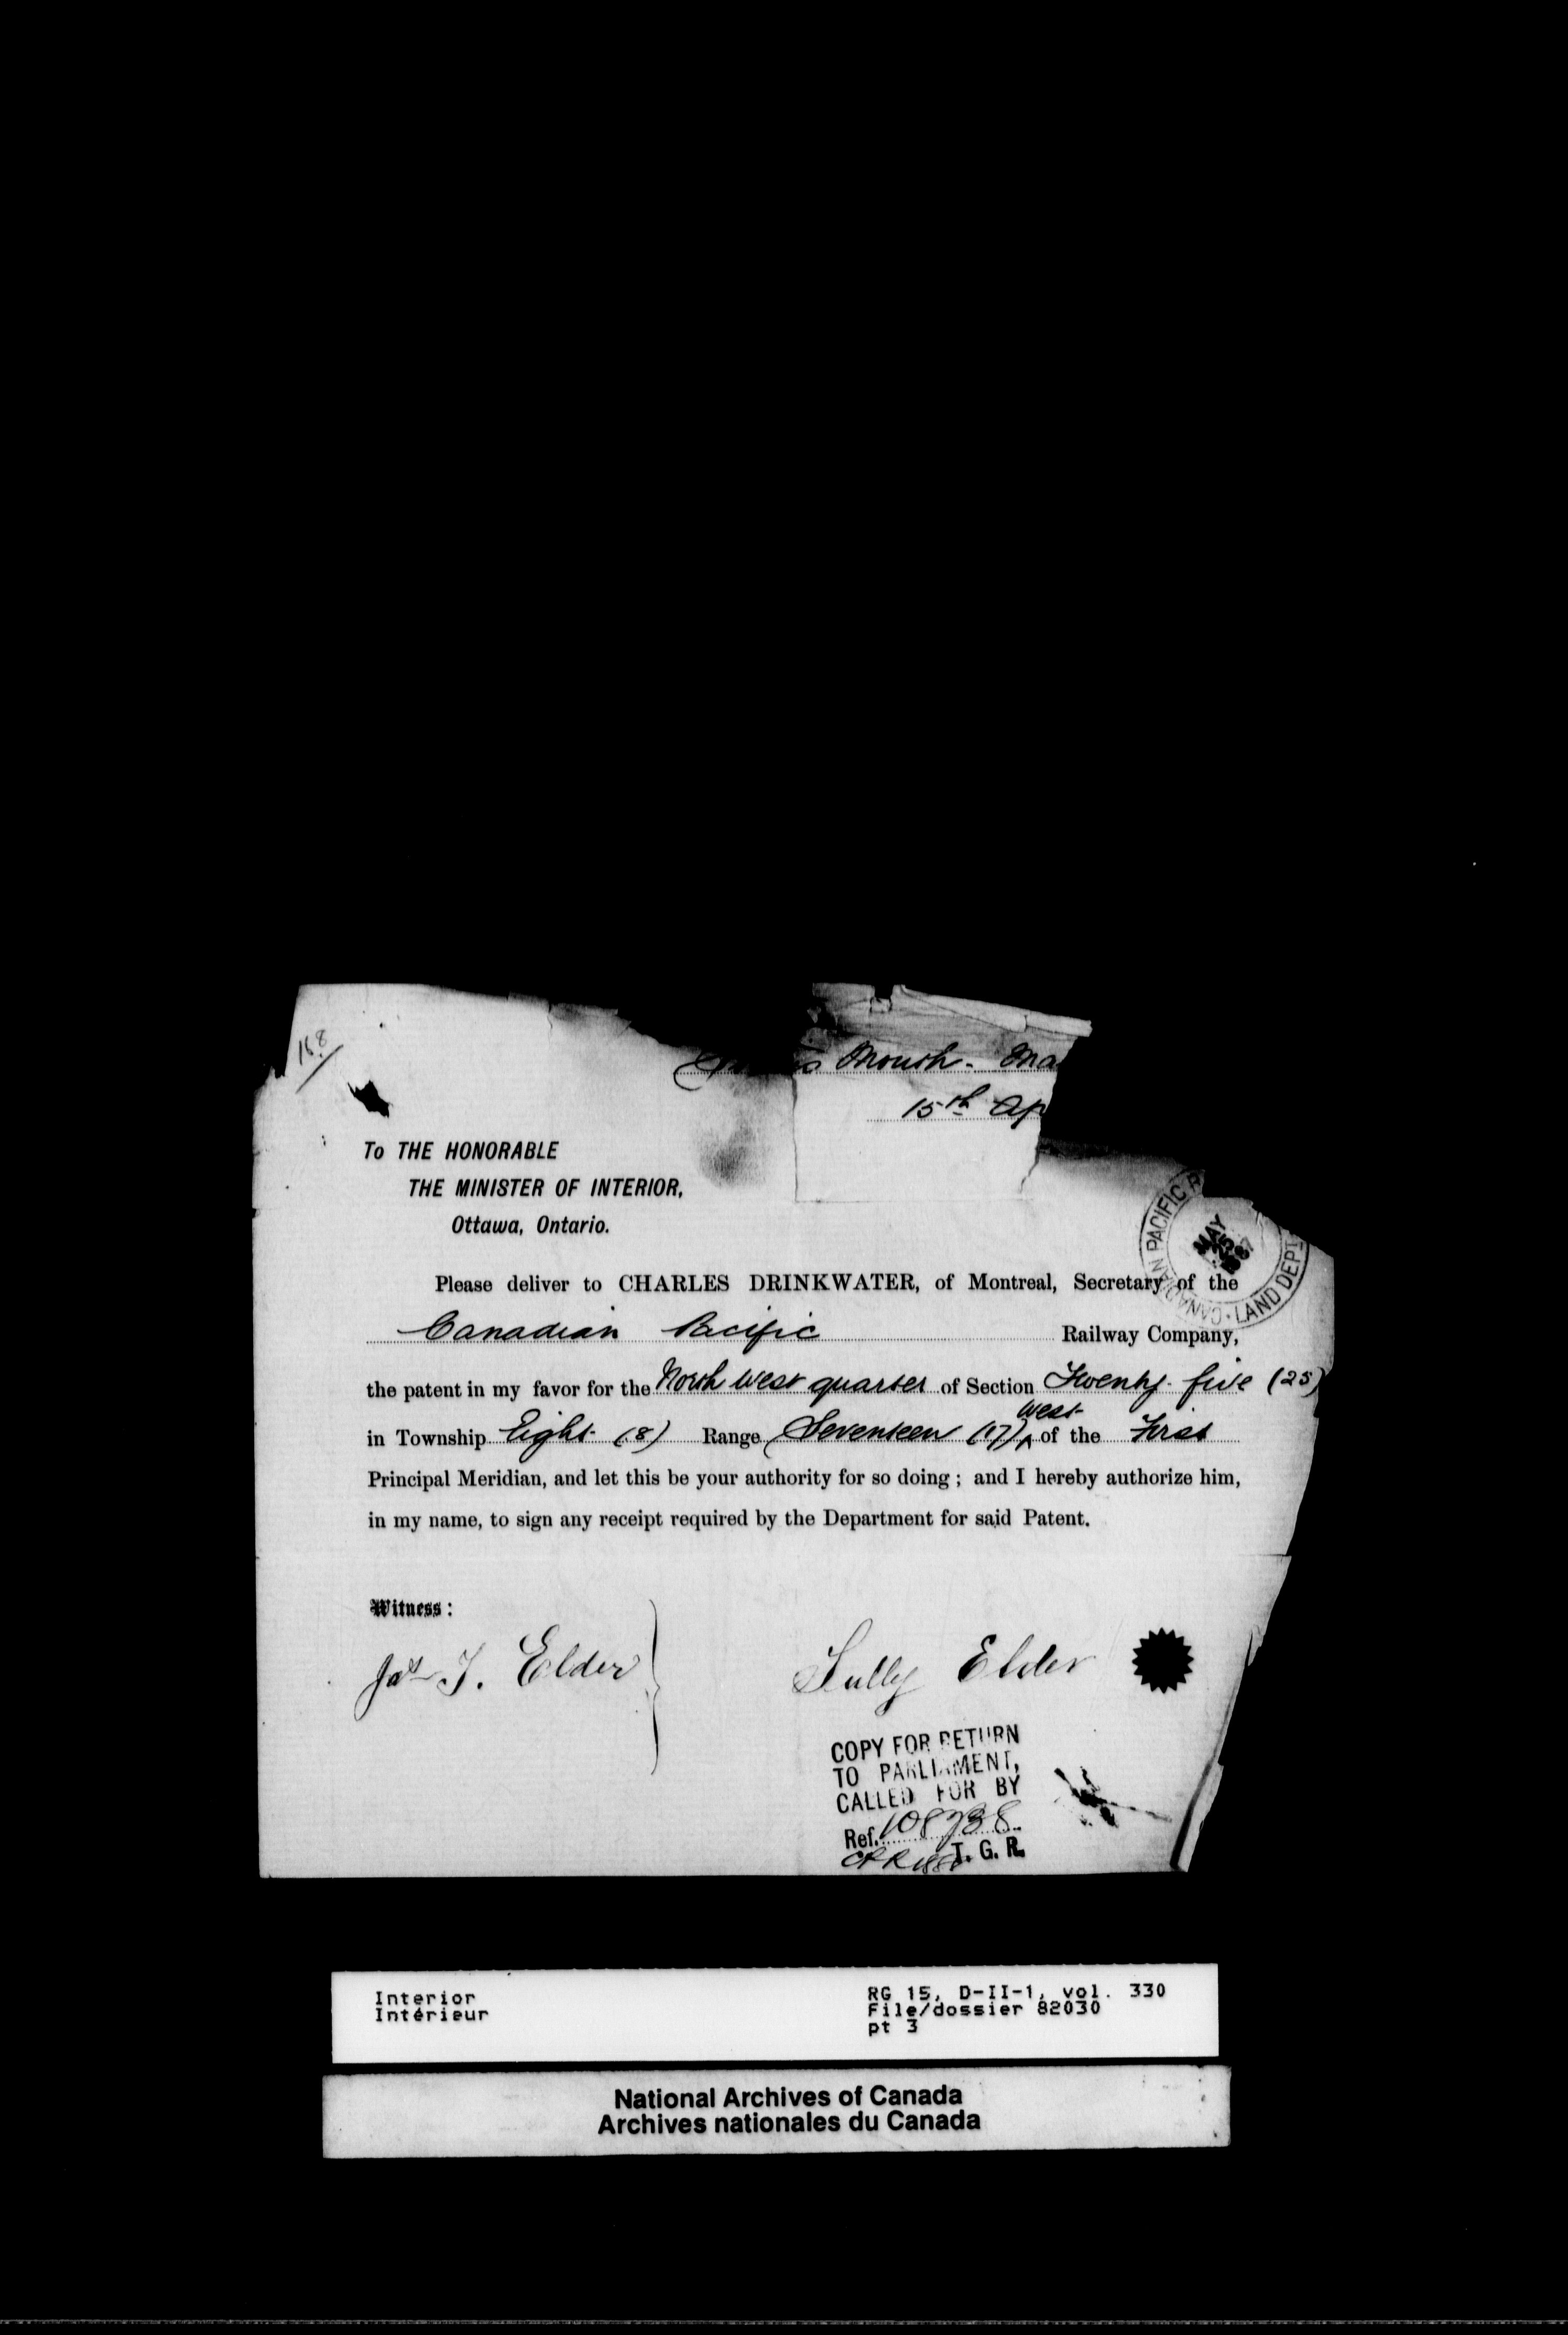 168
s Mouth. Ma
15th Ap
To THE HONORABLE
THE MINISTER OF INTERIOR,
Ottawa, Ontario.
CANADIAN PACIFIC R
LAND DEPT
MAY
25
1887
Please deliver to CHARLES DRINKWATER, of Montreal, Secretary of the
Canadian Pacific Railway Company,
the patent in my favor for the North West quarter of Section Twenty-five (25)
in Township Eight (8) Range Seventeen (17) West of the First
Principal Meridian, and let this be your authority for so doing ; and I hereby authorize him,
in my name, to sign any receipt required by the Department for said Patent.
Witness :
Jas T. Elder
Elder
COPY FOR RETURN
TO PARLIAMENT,
CALLED FOR BY
Ref. 108738
T. G. R.
Interior
Intérieur
RG 15, D-II-1, vol. 330
File/dossier 82030
pt 3
National Archives of Canada
Archives nationales du Canada